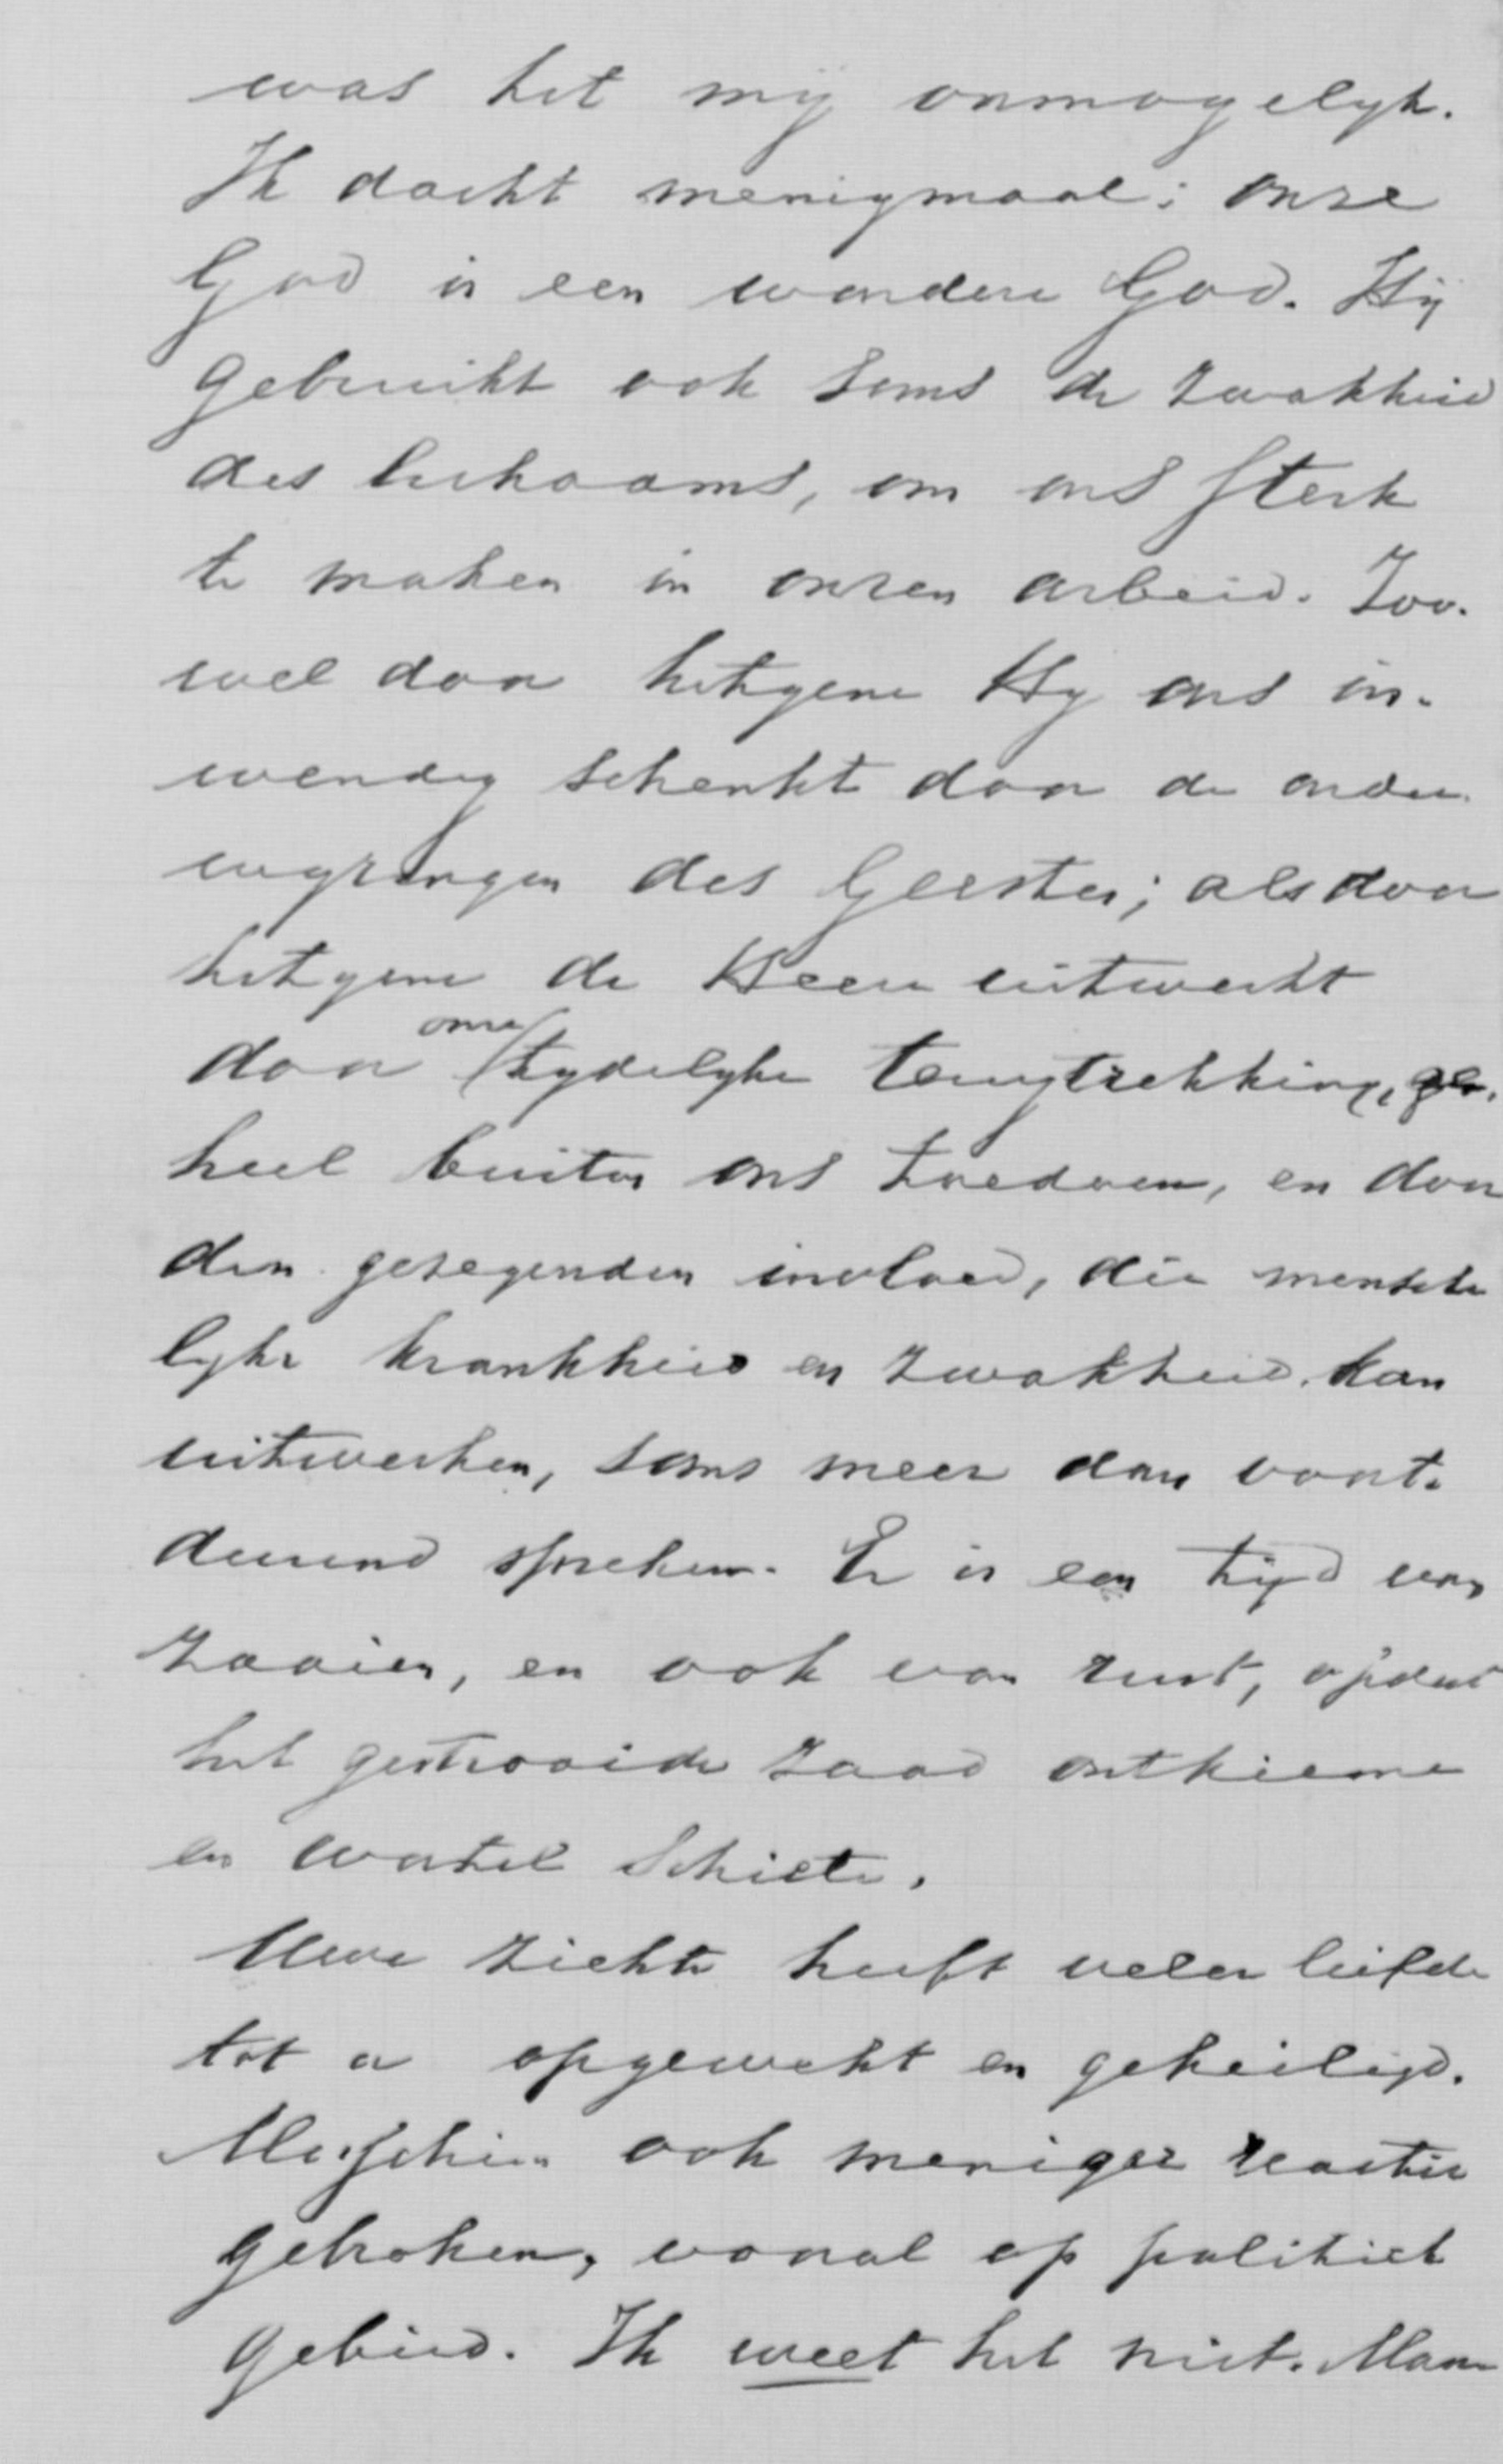 was het mij onmogelyk.
Ik dacht menigmaal: onze
God is een wondere God. Hij
gebruikt ook soms de zwakheid
des lichaams, om ons sterk
te maken in onzen arbeid. Zoo-
wel door hetgene Hy ons in-
wendig schenkt door de onder-
wyzingen des Geestes; als door
hetgene de Heere uitwerkt
door onze tydelyke terugtrekking, ge-
heel buiten ons toedoen, en door
den gezegenden invloed, die mensche
lyke krankheid en zwakheid kan
uitwerken, soms meer dan voort-
durend spreken. Er is een tijd van
zaaien, en ook van rust, opdat
het gestrooide zaad ontkieme
en wortel schiete.
Uwe ziekte heeft veler liefde
tot u opgewekt en geheiligd.
Misschien ook meniger reactie
gebroken, vooral op politiek
gebied. Ik weet het niet. Maar